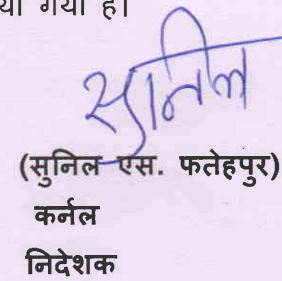 या गया है।
सुनिल
(सुनिल एस. फतेहपुर)
कर्नल
निदेशक